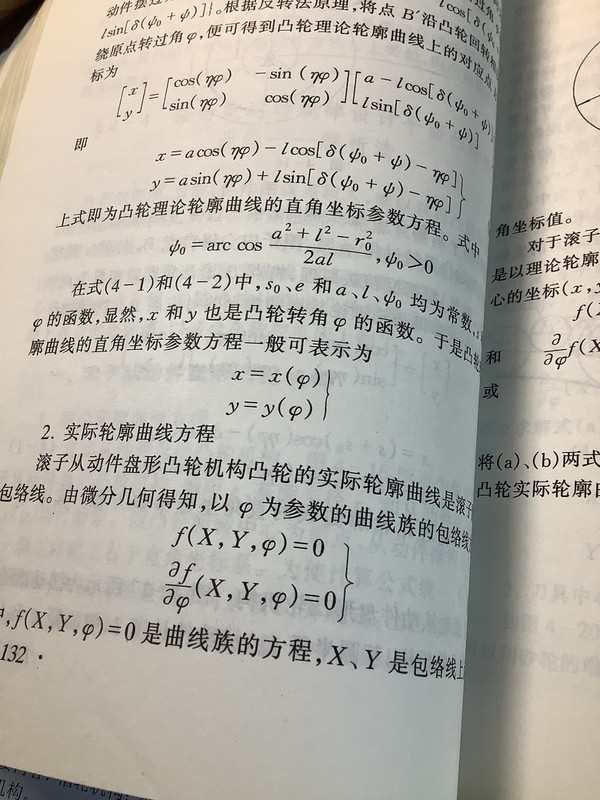 动件摆过角
lsin[δ(ψ₀+ψ)]}。根据反转法原理,将点 B′沿凸轮回转相
绕原点转过角φ,便可得到凸轮理论轮廓曲线上的对应点
标为
[x y]=[cos(ηφ) -sin(ηφ) sin(ηφ) cos(ηφ)][a-lcos[δ(ψ₀+ψ)] lsin[δ(ψ₀+ψ)]
即
x=acos(ηφ)-lcos[δ(ψ₀+ψ)-ηφ]
y=asin(ηφ)+lsin[δ(ψ₀+ψ)-ηφ]}
上式即为凸轮理论轮廓曲线的直角坐标参数方程。式中
ψ₀=arc cos (a²+l²-r₀²)/2al, ψ₀>0
在式(4-1)和(4-2)中,s₀、e 和 a、l、ψ₀ 均为常数,
φ 的函数,显然,x 和 y 也是凸轮转角 φ 的函数。于是凸轮
廓曲线的直角坐标参数方程一般可表示为
x=x(φ)
y=y(φ)}
2. 实际轮廓曲线方程
滚子从动件盘形凸轮机构凸轮的实际轮廓曲线是滚子
包络线。由微分几何得知,以 φ 为参数的曲线族的包络线
f(X,Y,φ)=0
∂f/∂φ(X,Y,φ)=0}
,f(X,Y,φ)=0 是曲线族的方程,X、Y 是包络线上
132 ·
角坐标值。
对于滚子
是以理论轮廓
心的坐标(x,y
f(X
和
∂/∂φ f(X
或
将(a)、(b)两式
凸轮实际轮廓
机构。